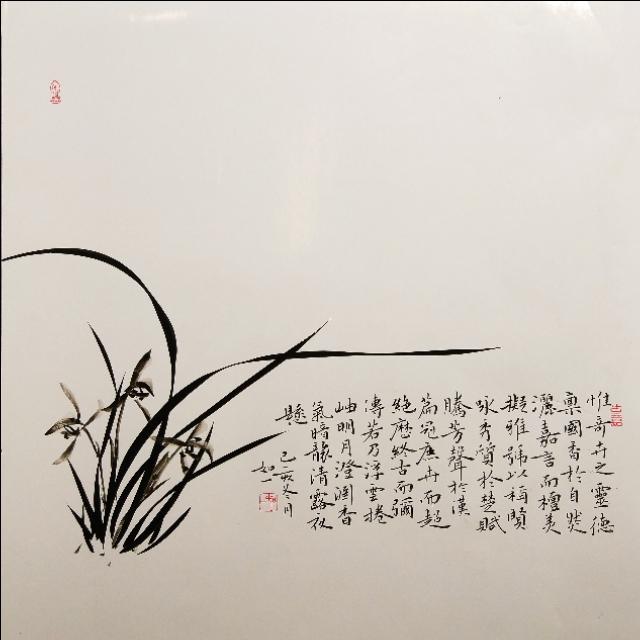 惟奇卉之靈德
稟國香於自然
灑嘉言而擅美
擬雅號以稱賢
咏秀質於楚賦
騰芳聲於漢
篇冠庶卉而超
絕歷終古而彌
傳若乃浮雲捲
岫明月澄澗香
氣暗清露夜
懸
己亥冬月
如一